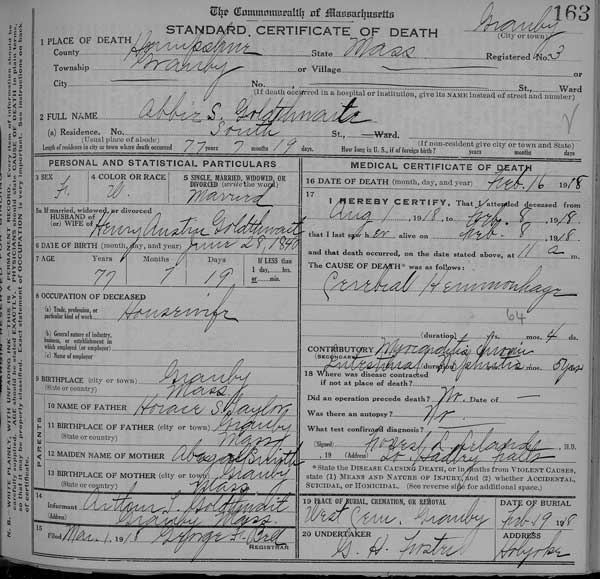 The Commonwealth of Massachusetts
163
STANDARD CERTIFICATE OF DEATH
Granby
(City or town)
1 PLACE OF DEATH
County Hampshire State Mass Registered No. 3
Township Granby or Village or
City No. St., Ward
(If death occurred in a hospital or institution, give its NAME instead of street and number)
2 FULL NAME Abbie S. Goldthwaite
(a) Residence. No. South St., Ward.
(Usual place of abode) (If non-resident give city or town and State)
Length of residence in city or town where death occurred 77 years 7 months 19 days. How long in U. S., if of foreign birth? years months days
PERSONAL AND STATISTICAL PARTICULARS
3 SEX F. 4 COLOR OR RACE W. 5 SINGLE, MARRIED, WIDOWED, OR DIVORCED (write the word) Married
5a If married, widowed, or divorced
HUSBAND of
(or) WIFE of Henry Austin Goldthwait
6 DATE OF BIRTH (month, day, and year) June 28, 1840
7 AGE Years Months Days If LESS than
77 7 19 1 day, hrs.
or min.
8 OCCUPATION OF DECEASED
(a) Trade, profession, or
particular kind of work Housewife
(b) General nature of industry,
business, or establishment in
which employed (or employer)
(c) Name of employer
9 BIRTHPLACE (city or town) Granby
(State or country) Mass
PARENTS
10 NAME OF FATHER Horace S Taylor
11 BIRTHPLACE OF FATHER (city or town) Granby
(State or country) Mass
12 MAIDEN NAME OF MOTHER Abagail Smith
13 BIRTHPLACE OF MOTHER (city or town) Granby
(State or country) Mass
14
Informant Arthur L. Goldthwait
(Address) Granby Mass.
15
Filed Mar. 1, 1918 George F.
REGISTRAR
MEDICAL CERTIFICATE OF DEATH
16 DATE OF DEATH (month, day, and year) Feb. 16 1918
17
I HEREBY CERTIFY, That I attended deceased from
Aug 1, 1918, to Feb. 8, 1918,
that I last saw her alive on Feb. 8, 1918,
and that death occurred, on the date stated above, at 11 a m.
The CAUSE OF DEATH* was as follows:
Cerebral Hemmorrhage
64
(duration) yrs. mos. 4 ds.
CONTRIBUTORY Myocarditis Chronic
(SECONDARY) Interstitial Nephritis
(duration) 5 yrs mos.
18 Where was disease contracted
if not at place of death?
Did an operation precede death? No. Date of —
Was there an autopsy? No.
What test confirmed diagnosis?
(Signed) M.D.
, 19 (Address) So. Hadley Falls
* State the DISEASE CAUSING DEATH, or in deaths from VIOLENT CAUSES,
state (1) MEANS AND NATURE OF INJURY, and (2) whether ACCIDENTAL,
SUICIDAL, or HOMICIDAL. (See reverse side for additional space.)
19 PLACE OF BURIAL, CREMATION, OR REMOVAL DATE OF BURIAL
West Cem. Granby Feb 19 1918
20 UNDERTAKER ADDRESS
G. H. Foster Holyoke